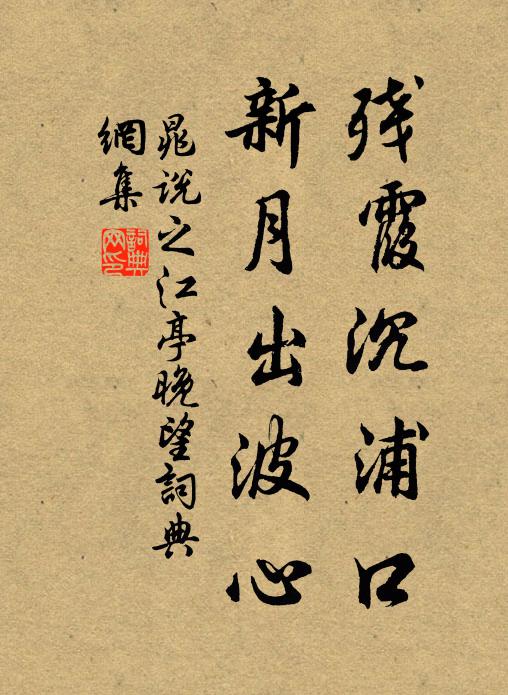 残霞沉浦口
新月出波心
晁说之江亭晚望詞典
網集
詞典
网印